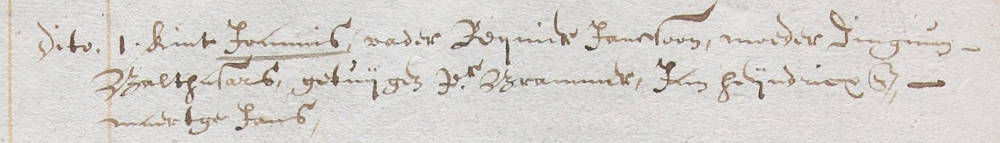 dito. 1. kint Jannis, vader Reijnier Jansoon, moeder Dingnum
Balthasars, getuijgen Pr. Brammer, Jan heijndricx &
maertge Jans,